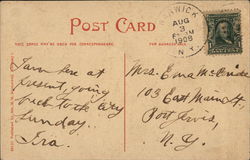 POST CARD
THIS SPACE MAY BE USED FOR CORRESPONDENCE.
FOR ADDRESS ONLY.
WICK
AUG
3
1908
N.Y.
Am here at
present, going
back to the City
Sunday.
Ira.
Mrs. Erma McBride
103 East Main St
Port Jervis,
N.Y.